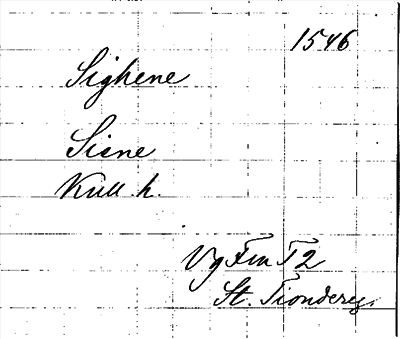 1546
Sighene
Siene
Kull h.
Vg Fru T 2
St. Tiondereg.